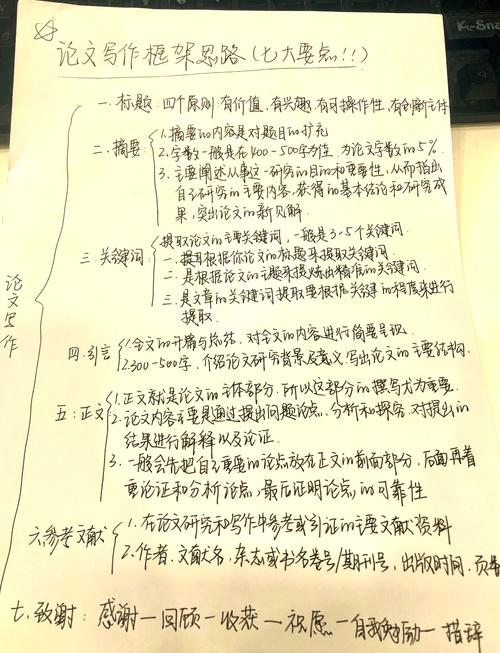 K-Snak
论文写作框架思路(七大要点!!)
论文写作
一、标题:四个原则:有价值、有兴趣、有可操作性、有创新主体
二、摘要:
1.摘要的内容是对题目的扩充
2.字数一般是在400-500字为佳,为论文字数的5%.
3.主要阐述从事这一研究的目的和重要性,从而指出
自己研究的主要内容,获得的基本结论和研究成
果,突出论文的新见解.
三、关键词:
提取论文的主要关键词,一般是3-5个关键词.
一.提取根据你论文的标题来提取关键词.
二.是根据论文的主题来提炼出精准的关键词.
三.是文章的关键词提取要根据关键的程度来进行
提取.
四.引言
1.全文的开篇与总结,对全文的内容进行简要呈现.
2.300-500字,介绍论文研究背景及意义,写出论文的主要结构.
五:正文
1.正文就是论文的主体部分,所以这部分的撰写尤为重要.
2.论文内容主要是通过提出问题论点,分析和探究,对提出的
结果进行解释以及论证.
3.一般会先把自己重要的论点放在正文的前面部分,后面再着
重论证和分析论点,最后证明论点的可靠性
六.参考文献
1.在论文研究和写作中参考或引证的主要文献资料
2.作者、文献名、杂志或书名卷号/期刊号,出版时间,页
七.致谢:感谢一回顾一收获一祝愿一自我勉励一措辞